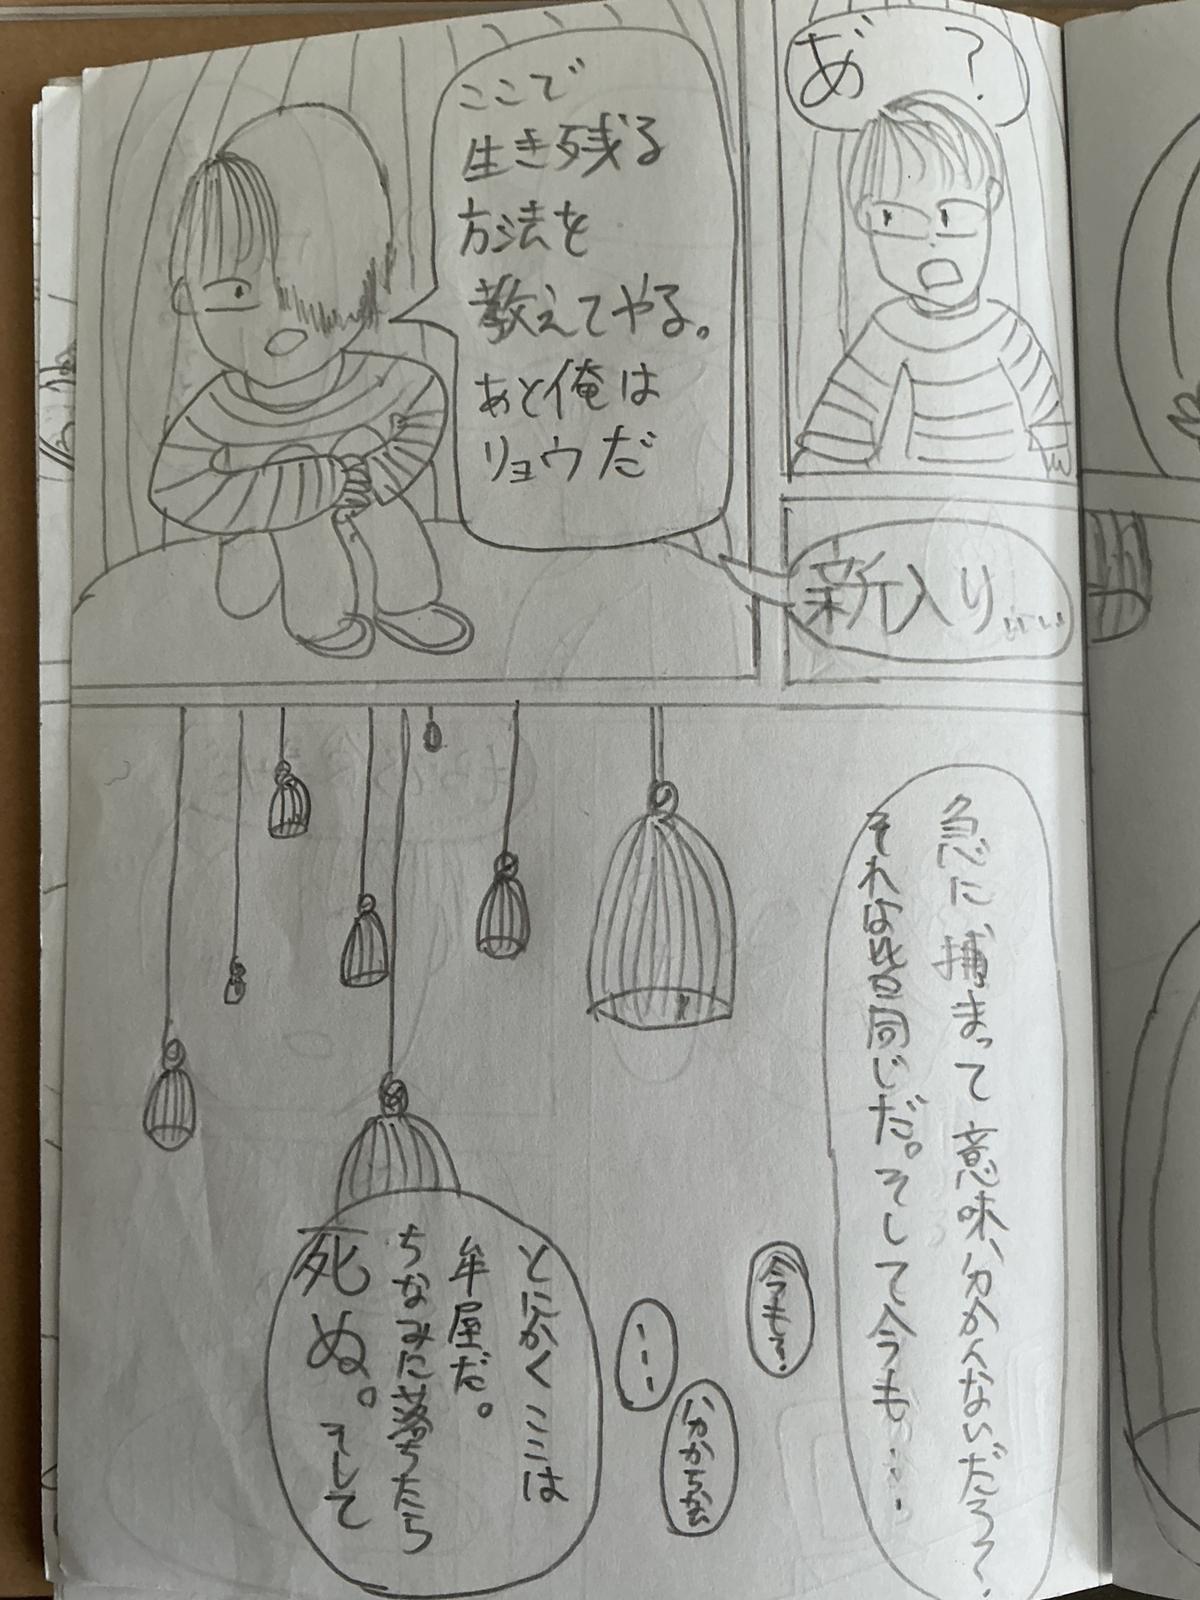 あ゛?
新入り……
ここで
生き残る
方法を
教えてやる。
あと俺は
リョウだ
急に捕まって意味分かんないだろ?
それは皆同じだ。そして今も…
今も?
…
とにかくここは
牢屋だ。
ちなみに落ちたら
死ぬ。そして